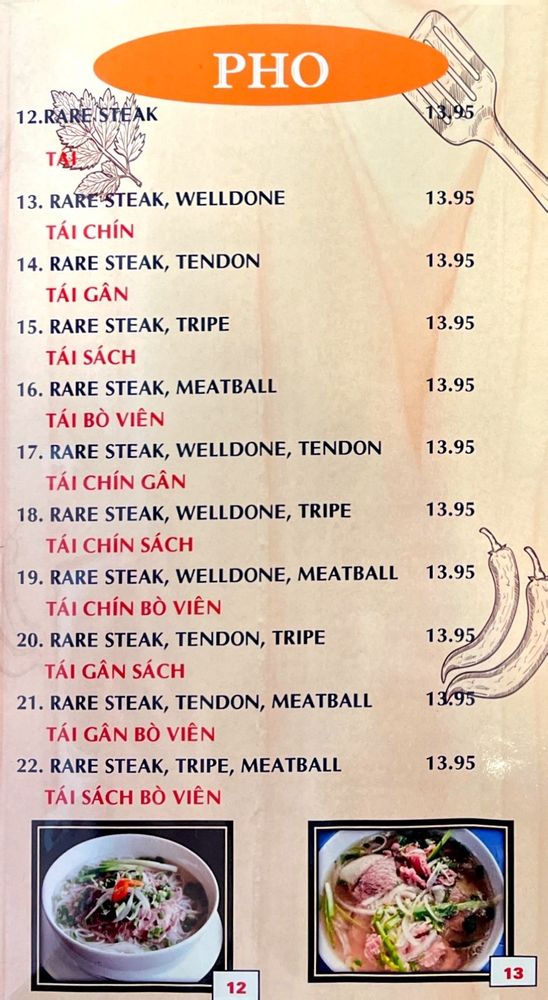 PHO
12.RARE STEAK 13.95
TÁI
13. RARE STEAK, WELLDONE 13.95
TÁI CHÍN
14. RARE STEAK, TENDON 13.95
TÁI GÂN
15. RARE STEAK, TRIPE 13.95
TÁI SÁCH
16. RARE STEAK, MEATBALL 13.95
TÁI BÒ VIÊN
17. RARE STEAK, WELLDONE, TENDON 13.95
TÁI CHÍN GÂN
18. RARE STEAK, WELLDONE, TRIPE 13.95
TÁI CHÍN SÁCH
19. RARE STEAK, WELLDONE, MEATBALL 13.95
TÁI CHÍN BÒ VIÊN
20. RARE STEAK, TENDON, TRIPE 13.95
TÁI GÂN SÁCH
21. RARE STEAK, TENDON, MEATBALL 13.95
TÁI GÂN BÒ VIÊN
22. RARE STEAK, TRIPE, MEATBALL 13.95
TÁI SÁCH BÒ VIÊN
12
13